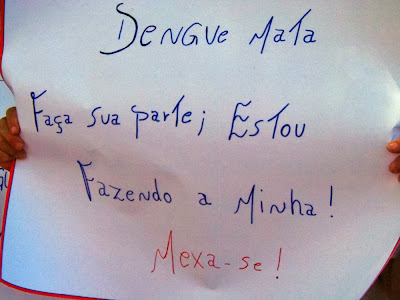 Dengue Mata
Faça sua parte; Estou
Fazendo a Minha!
Mexa-se!